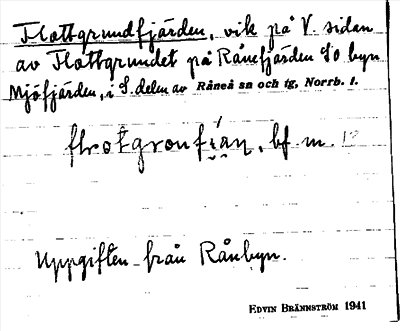 Flottgrundfjärden, vik på V. sidan
av Flottgrundet på Rånefjärden SO byn
Mjöfjärden, i S. delen av Råneå sn och tg, Norrb. l.
bf. m.
Uppgiften från Rånbyn.
EDVIN BRÄNNSTRÖM 1941